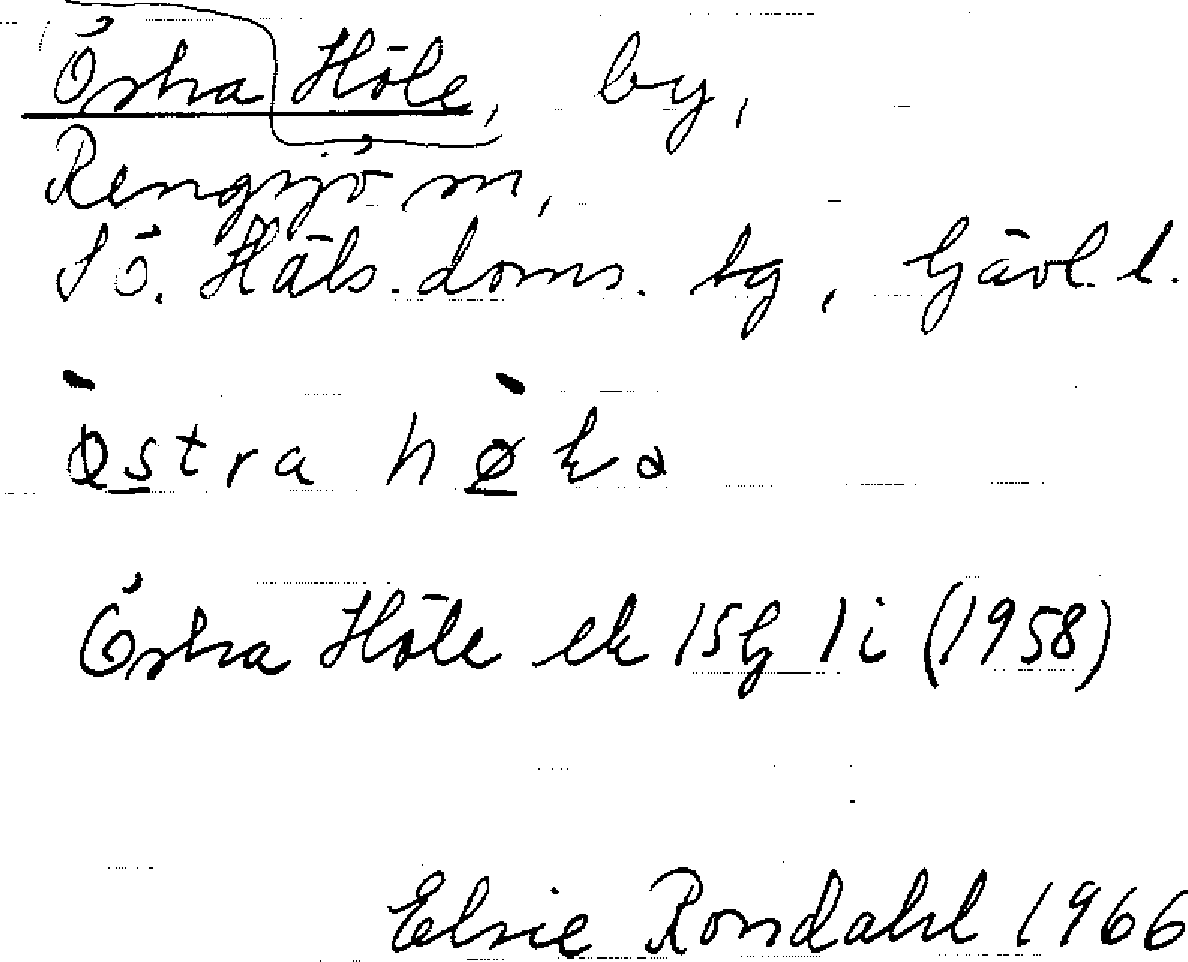 Östra Höle, by,
Rengsjö sn,
Sö. Häls. doms. bg, Gävl. l.
östra
Östra Höle ek 15G 1i (1958)
Elsie Rondahl 1966